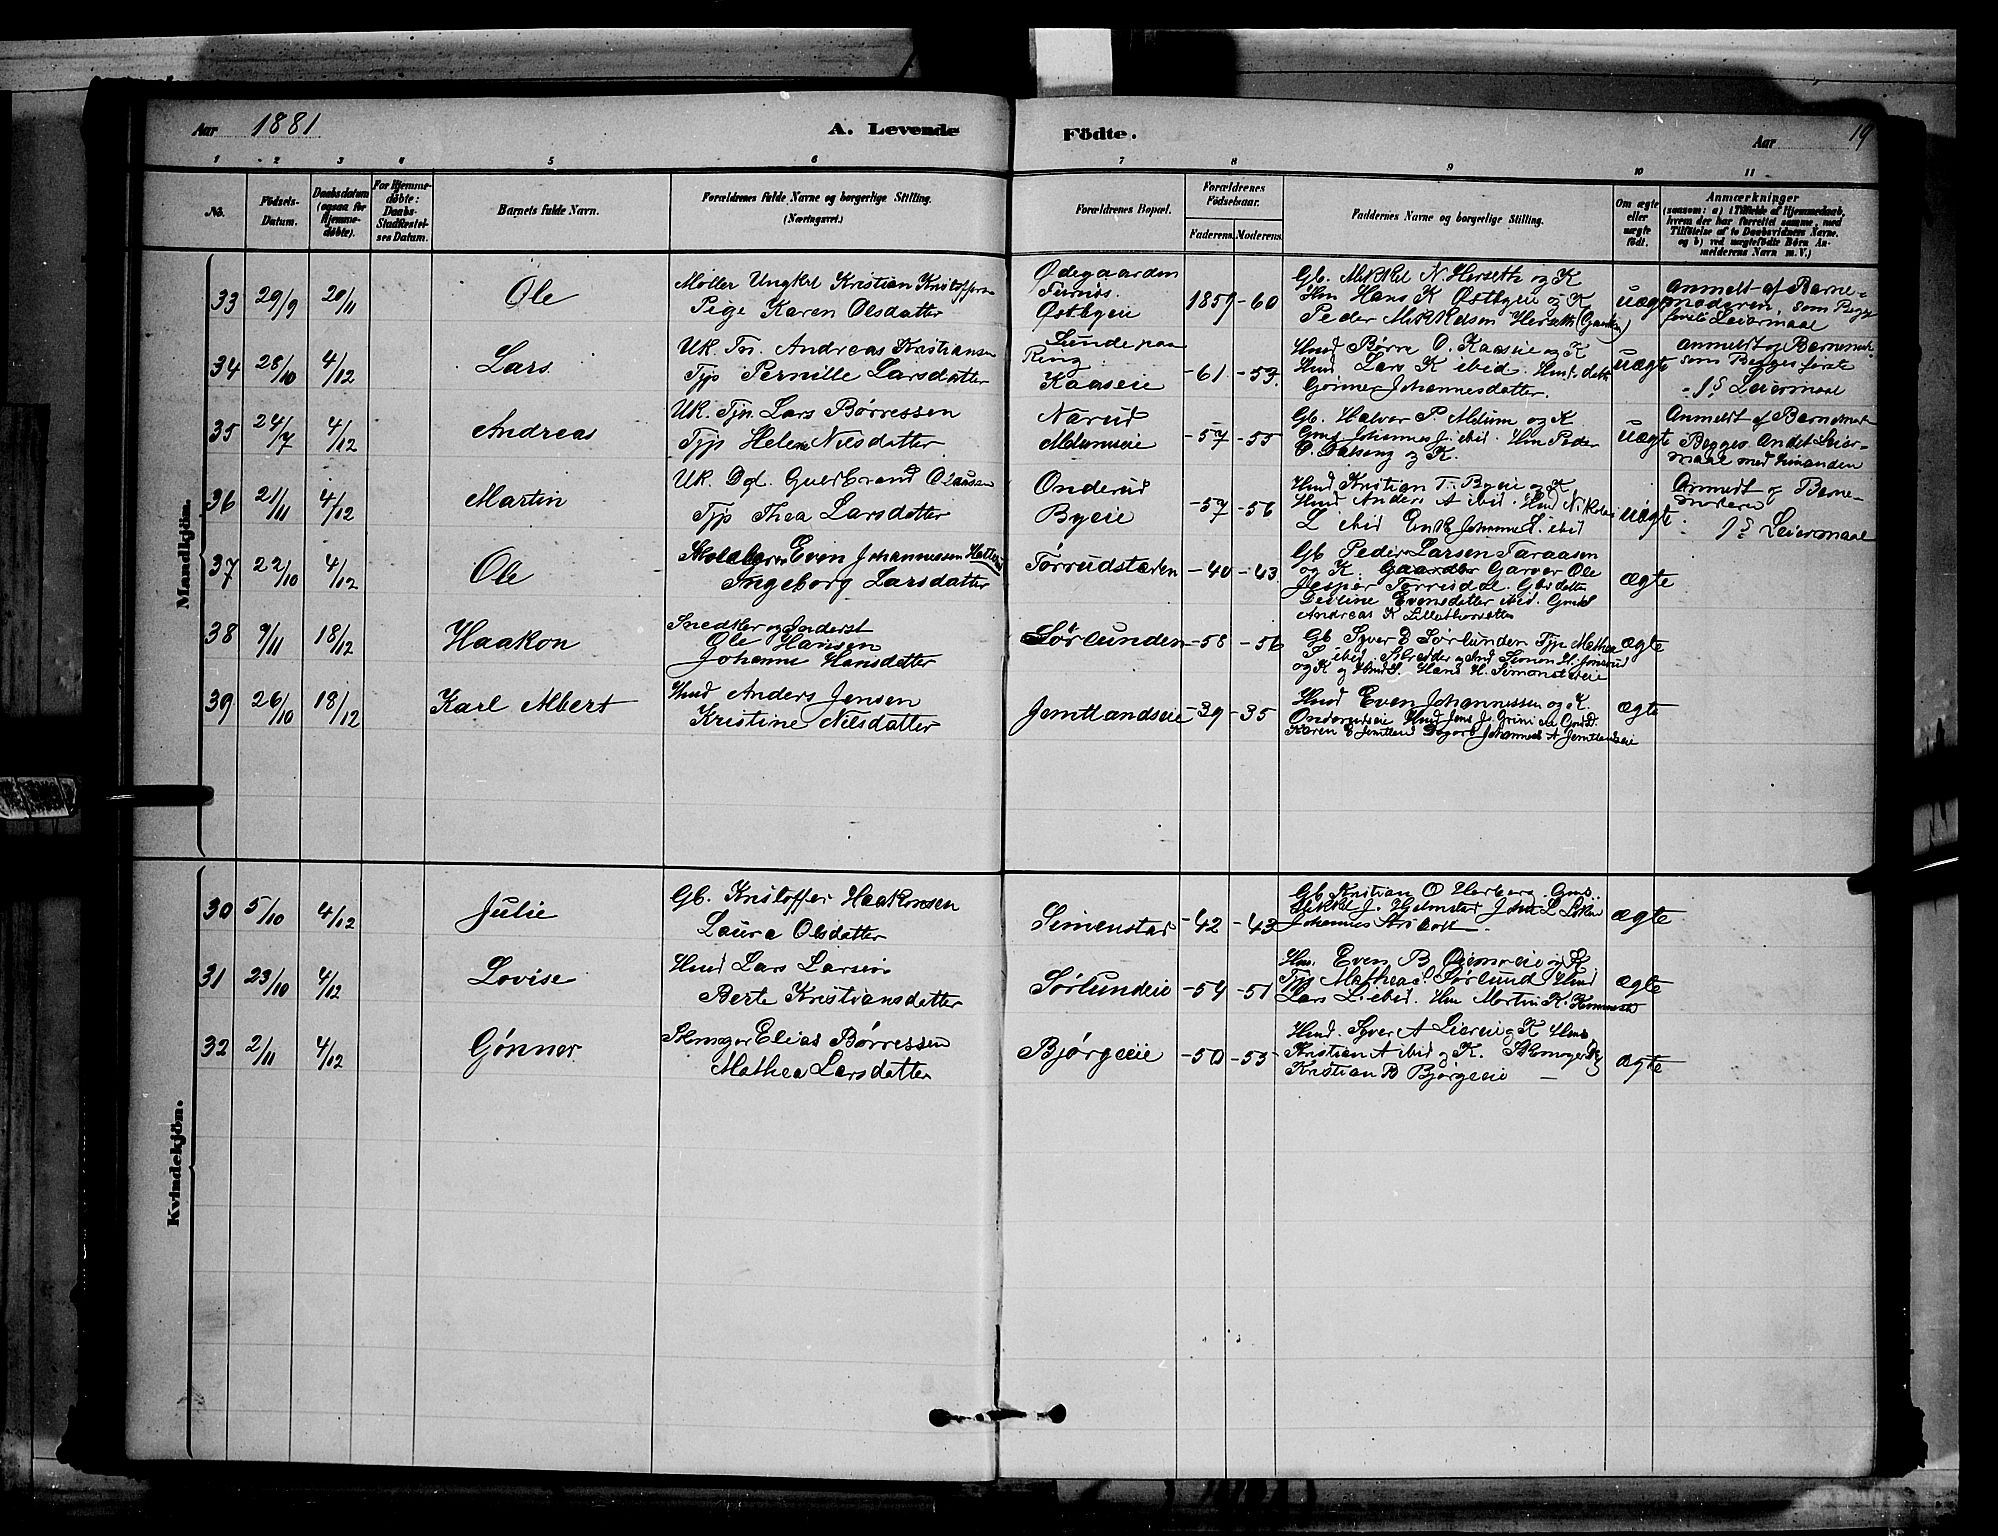 Aar 1881
A. Levende Födte.
Aar 19
1 2 3 4 5 6 7 8 9 10 11
No.
Födsels-
Datum.
Daabsdatum
(ogsaa for
Hjemme-
döbte).
For Hjemme-
döbte:
Daabs-
Stadfæstel-
ses Datum.
Barnets fulde Navn.
Forældrenes fulde Navne og borgerlige Stilling.
(Næringsvei.)
Forældrenes Bopæl.
Forældrenes
Födselsaar.
Faderens. Moderens.
Faddernes Navne og borgerlige Stilling.
Om ægte
eller
uægte
födt.
Anmærkninger
(saasom: a) i Tilfælde af Hjemmedaab,
hvem der har forrettet samme, med
Tilföielse af to Daabsvidners Navne,
og b) ved uægtefödte Börn An-
melderens Navn m. V.)
Mandkjön.
33 29/9 20/11
Ole
Møller Ungkl Kristian
Pige Karen Olsdatter
Ødegaarden
Østbyeie
1859 -60
Gb. Mikkel N. Herseth og K
Hm Hans K Østbyeie og K
Peder Mikkelsen Herseth
uægte
Anmeldt af Barne-
moderen, som Begges
første Leiermaal
34 28/10 4/12
Lars
UK. Tn. Andreas Kristiansen
Tjp Pernille Larsdatter
Lunde paa
Ring
Kaaseie
-61 -53
Hmd Børre O. Kaaseie og K
Hmd Lars K ibid.
Gønner Johannesdatter.
uægte
Anmeldt af
som Begges første
Leiermaal
35 24/7 4/12
Andreas
UK. Tjn. Lars Børressen
Tjp Helene Nilsdatter
Narud
Melumseie
-57 -55
Gb. Halvor P. Melum og K
Johannes J. ibid. Hm Peder
O. Dalseng og K.
uægte
Anmeldt af
Begges Andet Leier-
maal med hinanden
36 21/11 4/12
Martin
UK. Dgl. Gudbrand Olausen
Tjp Thea Larsdatter
Onderud
Byeie
-57 -56
Hmd Kristian T. Byeie og K
Hmd Anders A ibid
L ibid Enke Johanne L. ibid
uægte
Anmeldt af Barne-
moderen
1ste Leiermaal
37 22/10 4/12
Ole
Even Johannessen
Ingeborg Larsdatter
Tørrudstæren
-40 -43
Gb Peder Larsen Taraasen
og K. Garver Ole
Jesper Torrisdal. Gbrdatter
Evensdatter ibid.
Andreas K
ægte
38 9/11 18/12
Haakon
Snedker og Inderst
Ole Hansen
Johanne Hansdatter
Sørlunden
-58 -56
Gb Syver E Sørlunden Tjp Mathea
ibid.
og K og
ægte
39 26/10 18/12
Karl Albert
Hmd Anders Jensen
Kristine Nilsdatter
Jemtlandseie
-39 -35
Hmd Even Johannessen og K.
Onderudseie Hmd Jens
Karen E Jemtland Johannes A Jemtlandseie
ægte
Kvindekjön.
30 5/10 4/12
Julie
Gb. Kristoffer Haakonsen
Laura Olsdatter
Simenstad
-42 -43
Gb Kristian O Herberg.
Mikkel J. Hjelmstad
Johannes
ægte
31 23/10 4/12
Lovise
Hmd Lars Larsen
Berte Kristiansdatter
Sørlundeie
-54 -51
Hm. Even B.
Tjp Mathea Sørlund Hmd
Lars L ibid. Hm Martin K.
ægte
32 2/11 4/12
Gønner
Skomager Elias Børressen
Mathea Larsdatter
Bjørgeeie
-50 -55
Hmd. Syver A Liereie og K Hmd
Kristian A ibid og K. Skomager
Kristian B Bjørgeeie
ægte